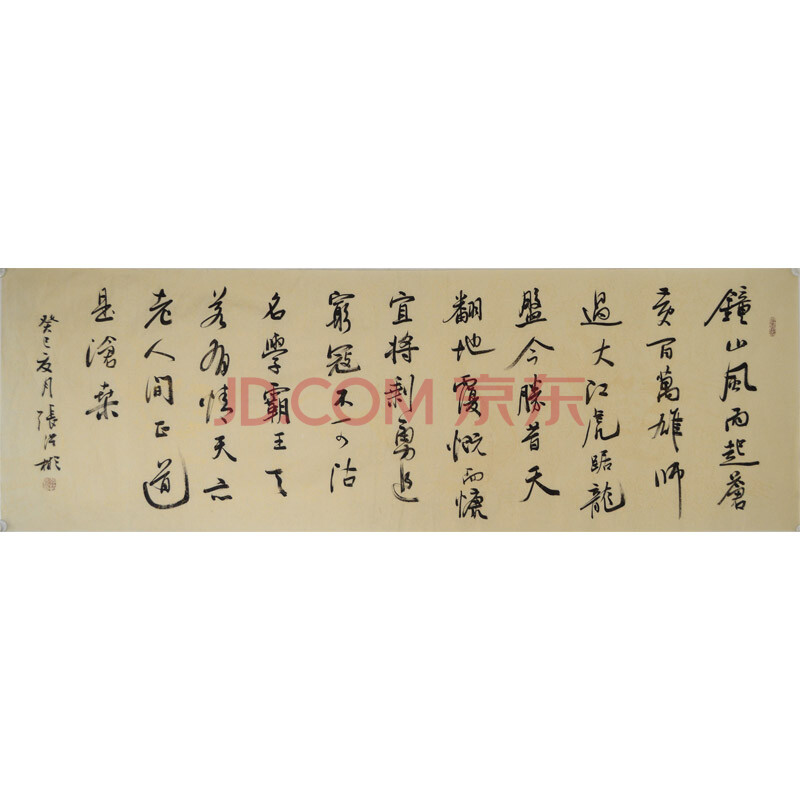 鐘山風雨起蒼
黃百萬雄師
過大江虎踞龍
盤今勝昔天
翻地覆慨而慷
宜將剩勇追
窮寇不可沽
名學霸王天
若有情天亦
老人間正道
是滄桑
癸巳夏月張
JD.COM 京东